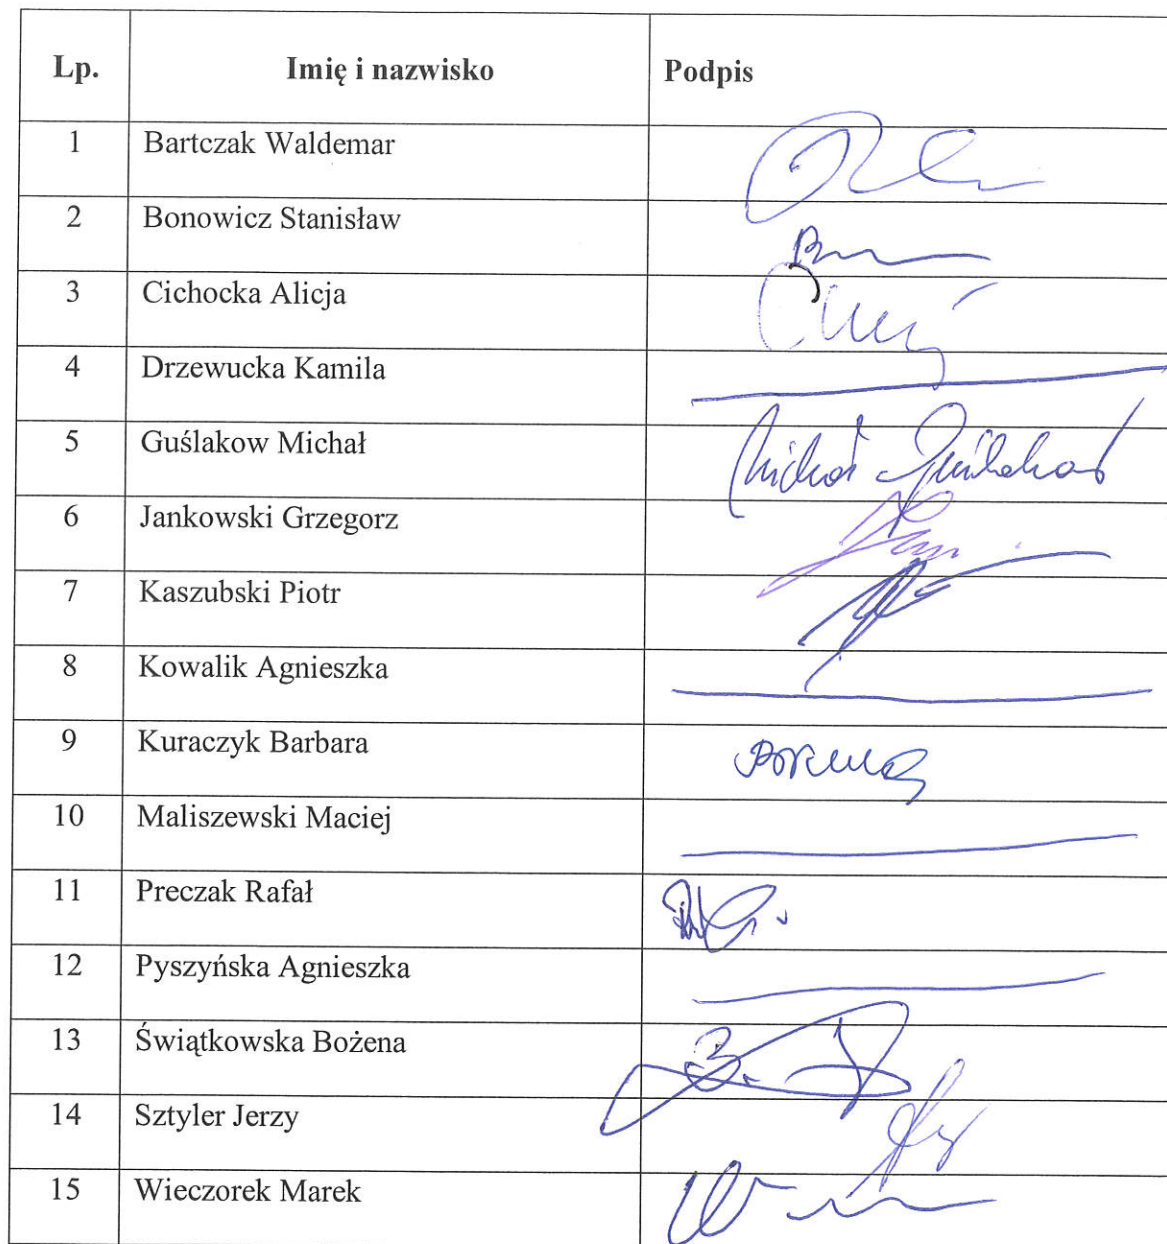 Lp. Imię i nazwisko Podpis
1 Bartczak Waldemar
2 Bonowicz Stanisław
3 Cichocka Alicja
4 Drzewucka Kamila
5 Guślakow Michał Michał Guślakow
6 Jankowski Grzegorz
7 Kaszubski Piotr
8 Kowalik Agnieszka
9 Kuraczyk Barbara
10 Maliszewski Maciej
11 Preczak Rafał
12 Pyszyńska Agnieszka
13 Świątkowska Bożena
14 Sztyler Jerzy
15 Wieczorek Marek